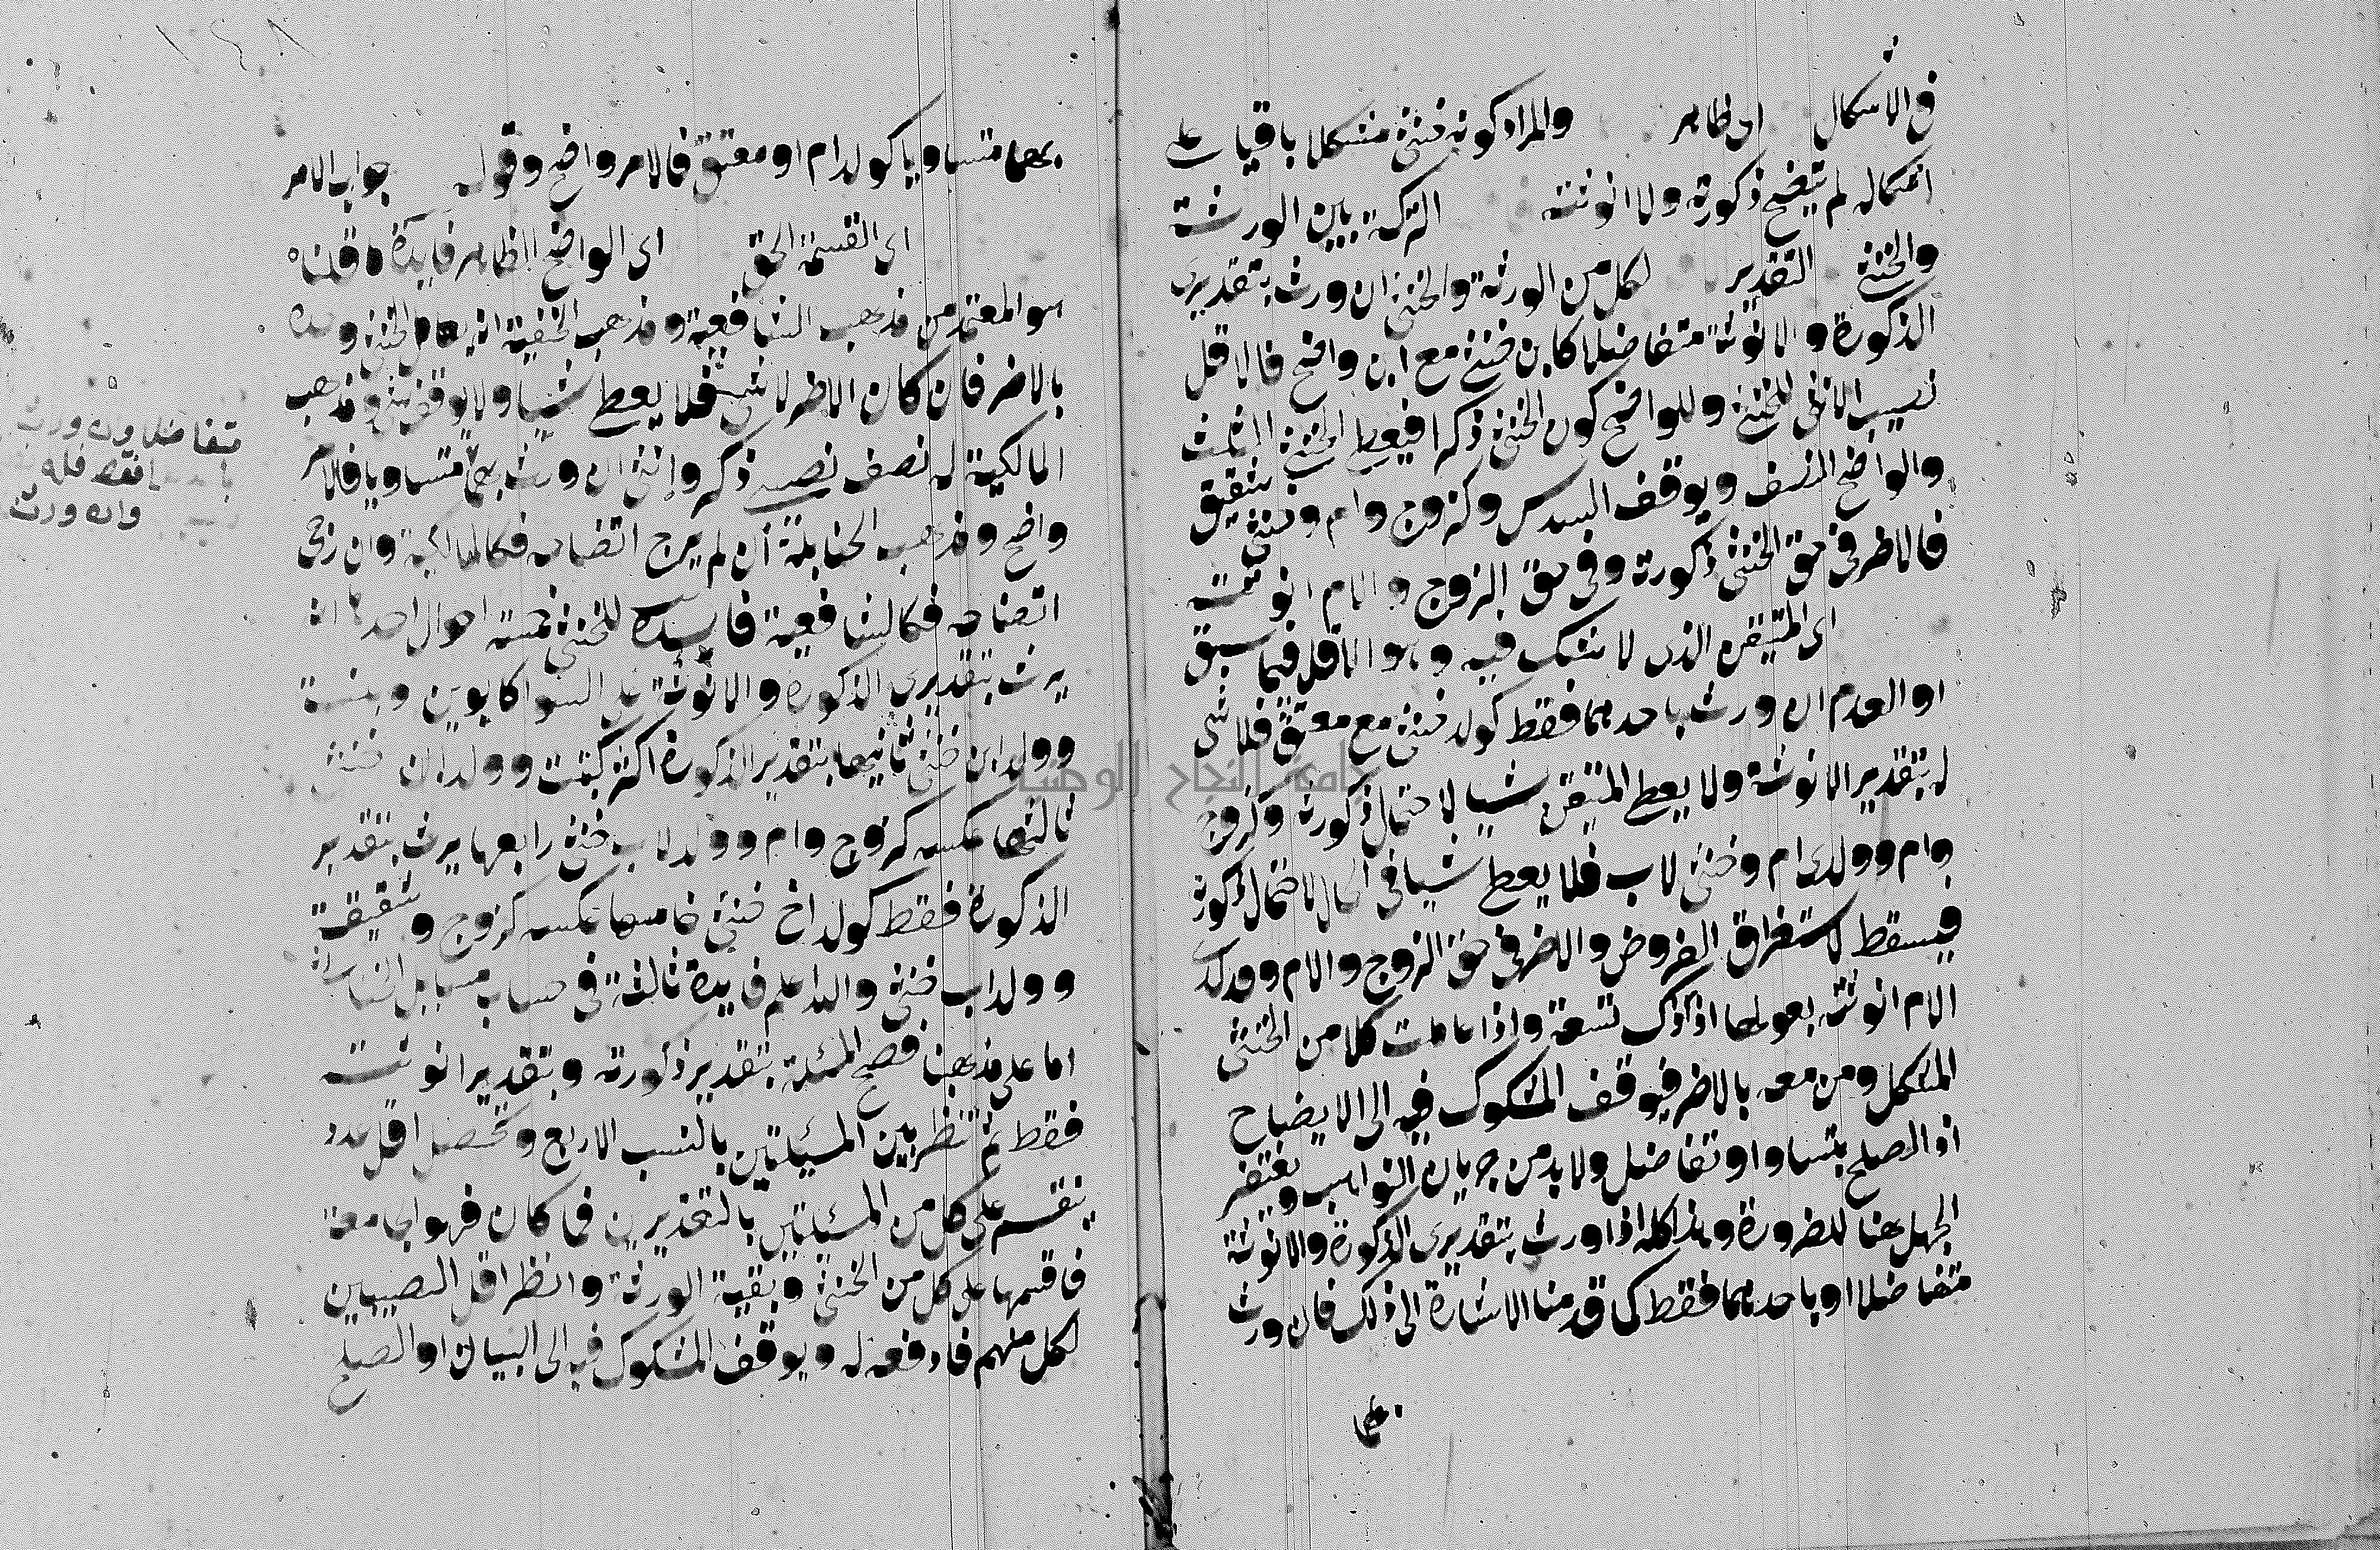 في الاشكال اي ظاهر والمراد كونه خنثى مشكلا باقيا على
اشكاله لم يتضح ذكورته ولا انوثته التركة بين الورثة
والخنثى التقدير لكل من الورثة والخنثى ان ورث بتقديري
الذكورة والانوثة متفاضلا كابن خنثى مع ابن واضح فالاقل
نصيب الانثى للخنثى وللواضح كون الخنثى ذكرا فيعطى الخنثى الثلث
والواضح النصف ويوقف السدس وكزوج وام وخنثى شقيق
فالاضر في حق الخنثى ذكورته وفي حق الزوج والام انوثته
اي المتيقن الذي لا شك فيه وهو الاقل فيما سبق
او العدم ان ورث باحدهما فقط كولد خنثى مع معتق فلا شي
له بتقدير الانوثة ولا يعطى المتيقن شيا لاحتمال ذكورته وكزوج
وام وولدي ام وخنثى لاب فلا يعطى شيا في الحال لاحتمال ذكورته
فيسقط لاستغراق الفروض والاضر في حق الزوج والام وولدي
الام انوثته بعولها اذ ذاك تسعة واذا عاملت كلا من الخنثى
المشكل ومن معه بالاضر فيوقف المشكوك فيه الى الايضاح
او الصلح بتساو او تفاضل ولا بد من جريان التواهب ويغتفر
الجهل هنا للضرورة وهذا كله اذا ورث بتقديري الذكورة والانوثة
متفاضلا او باحدهما فقط كما قدمنا الاشارة الى ذلك فان ورث
بهما
١٤٨
بهما متساويا كولد ام او معتق فالامر واضح وقوله جواب الامر
اي القسمة الحق اي الواضح الظاهر فايدة ما قلناه
هو المعتمد من مذهب الشافعية ومذهب الحنفية انه يعامل الخنثى وحده
بالاضر فان كان الاضر لا شي فلا يعطى شيا ولا يوقف شي ومذهب
المالكية له نصف نصيبي ذكر وانثى ان ورث بهما متساويا فالامر
واضح ومذهب الحنابلة ان لم يرج اتضاحه فكالمالكية وان رجي
اتضاحه فكالشافعية فايدة للخنثى خمسة احوال احدها انه
يرث بتقديري الذكورة والانوثة على السوا كابوين وبنت
وولد ابن خنثى ثانيها بتقدير الذكورة اكثر كبنت وولد ابن خنثى
ثالثها عكسه كزوج وام وولد لاب خنثى رابعها يرث بتقدير
الذكورة فقط كولد اخ خنثى خامسها عكسه كزوج وشقيقة
وولد اب خنثى والله اعلم فايدة ثالثة في حساب مسايل الخناثى
اما على مذهبنا فصحح المسئلة بتقدير ذكورته وبتقدير انوثته
فقط ثم تنظر بين المسئلتين بالنسب الاربع وتحصل اقل عدد
ينقسم على كل من المسئلتين بالتقديرين فما كان فهو الجامعة
فاقسمها على كل من الخنثى وبقية الورثة وانظر اقل النصيبين
لكل منهم فادفعه له ويوقف المشكوك فيه الى البيان او الصلح
متفاضلا وان ورث
فقط فله
وان ورث
جامعة النجاح الوطنية